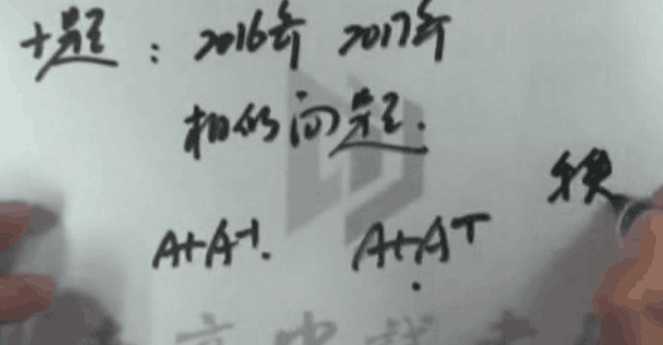 十题：2016年 2017年
相似问题.
换
A+A⁻¹. A+Aᵀ